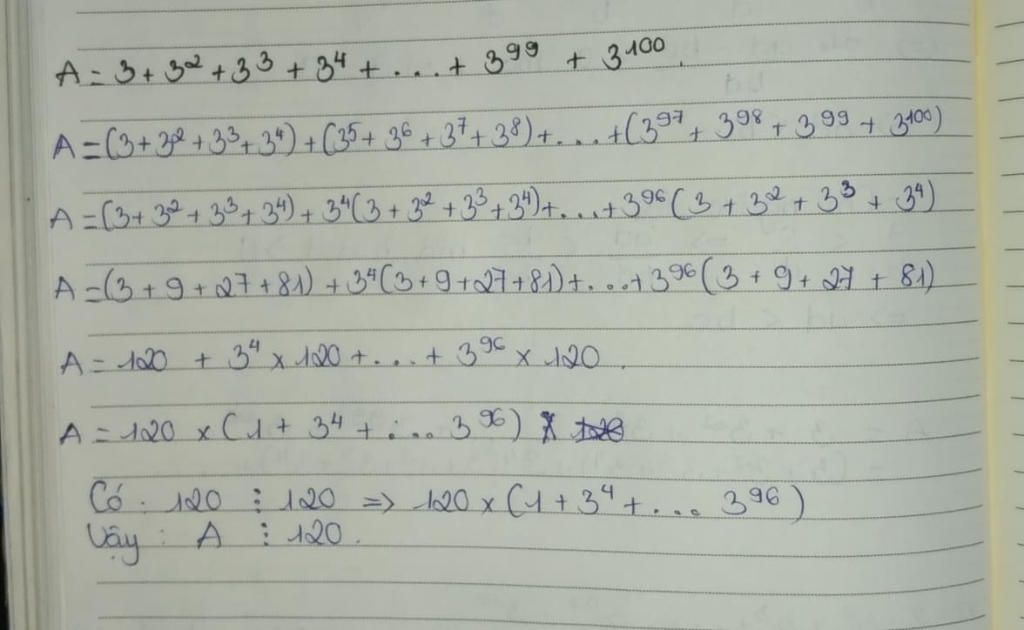 A = 3 + 3² + 3³ + 3⁴ + ... + 3⁹⁹ + 3¹⁰⁰.
A = (3 + 3² + 3³ + 3⁴) + (3⁵ + 3⁶ + 3⁷ + 3⁸) + ... + (3⁹⁷ + 3⁹⁸ + 3⁹⁹ + 3¹⁰⁰)
A = (3 + 3² + 3³ + 3⁴) + 3⁴(3 + 3² + 3³ + 3⁴) + ... + 3⁹⁶(3 + 3² + 3³ + 3⁴)
A = (3 + 9 + 27 + 81) + 3⁴(3 + 9 + 27 + 81) + ... + 3⁹⁶(3 + 9 + 27 + 81)
A = 120 + 3⁴ x 120 + ... + 3⁹⁶ x 120.
A = 120 x (1 + 3⁴ + ... 3⁹⁶)
Có : 120 ⋮ 120 => 120 x (1 + 3⁴ + ... 3⁹⁶)
Vậy : A ⋮ 120.